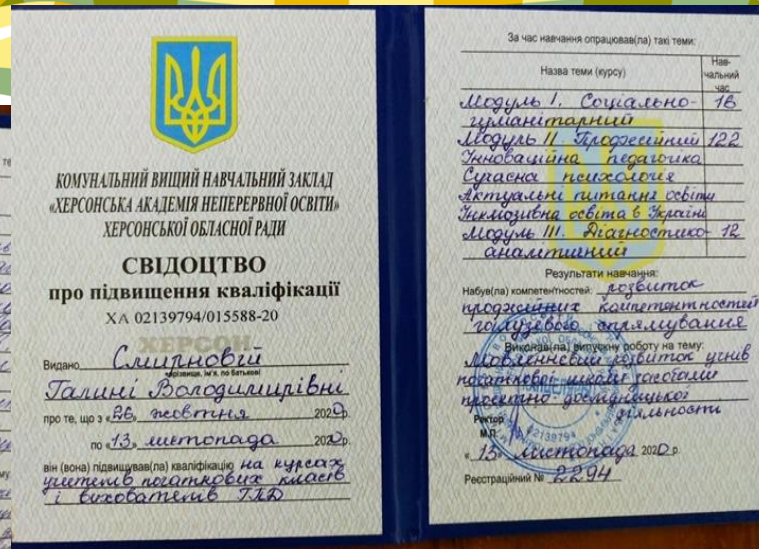 КОМУНАЛЬНИЙ ВИЩИЙ НАВЧАЛЬНИЙ ЗАКЛАД
«ХЕРСОНСЬКА АКАДЕМІЯ НЕПЕРЕРВНОЇ ОСВІТИ»
ХЕРСОНСЬКОЇ ОБЛАСНОЇ РАДИ
СВІДОЦТВО
про підвищення кваліфікації
ХА 02139794/015588-20
ХЕРСОН
Видано Смирновій
прізвище, ім'я, по батькові
Галині Володимирівні
про те, що з «26» жовтня 2020р.
по «13» листопада 2020р.
він (вона) підвищував(ла) кваліфікацію на курсах
учителів початкових класів
і вихователів ГПД
За час навчання опрацював(ла) такі теми:
Назва теми (курсу) Нав-
чальний
час
Модуль І. Соціально- 16
гуманітарний
Модуль ІІ. Професійний 122
Інноваційна педагогіка
Сучасна психологія
Актуальні питання освіти
Інклюзивна освіта в Україні
Модуль ІІІ. Діагностико- 12
аналітичний
Результати навчання:
Набув(ла) компетентностей: розвиток
професійних компетентностей
галузевого спрямування
Виконав(ла) випускну роботу на тему:
Мовленнєвий розвиток учнів
початкової школи засобами
проєктно-дослідницької
діяльності
Ректор
М.П.
02139794
«13» листопада 2020 р.
Реєстраційний № 2294